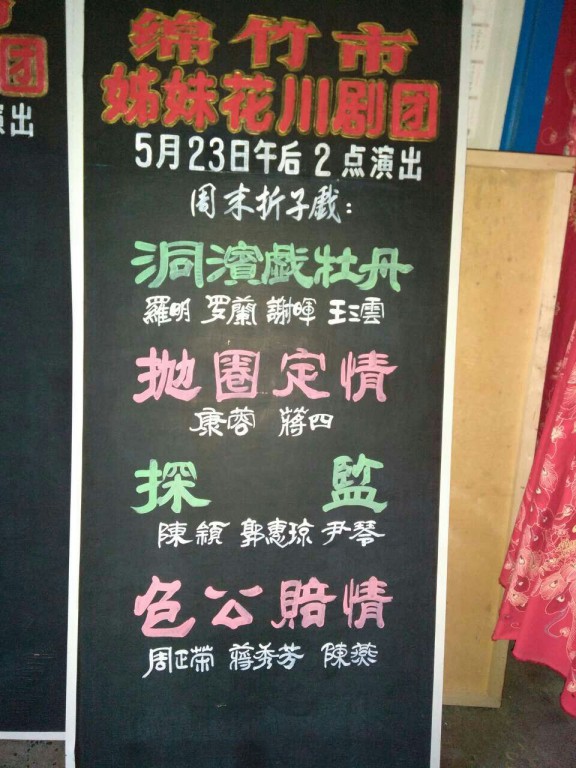 绵竹市
姊妹花川剧团
5月23日午后2点演出
周末折子戲：
洞濱戲牡丹
羅明 罗蘭 謝暉 王三雲
抛圈定情
康蓉 蔣四
探監
陳穎 郭惠琼 尹琴
包公賠情
周正荣 蔣秀芳 陳燕
团
演出